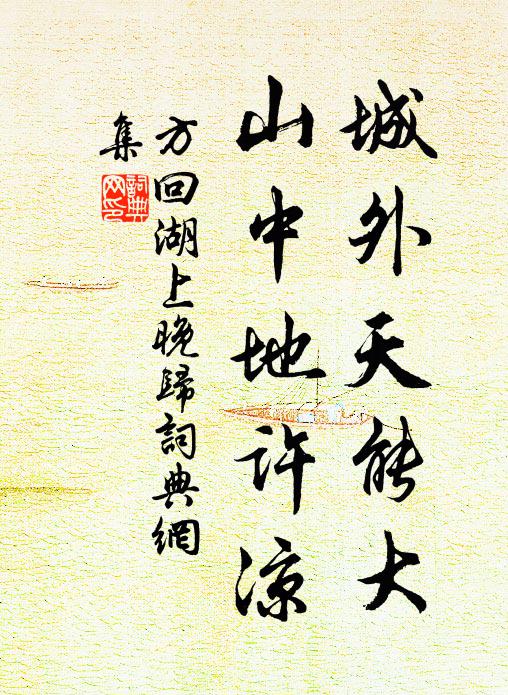 城外天能大
山中地许凉
方回湖上晚歸詞典網
集
詞典
网印